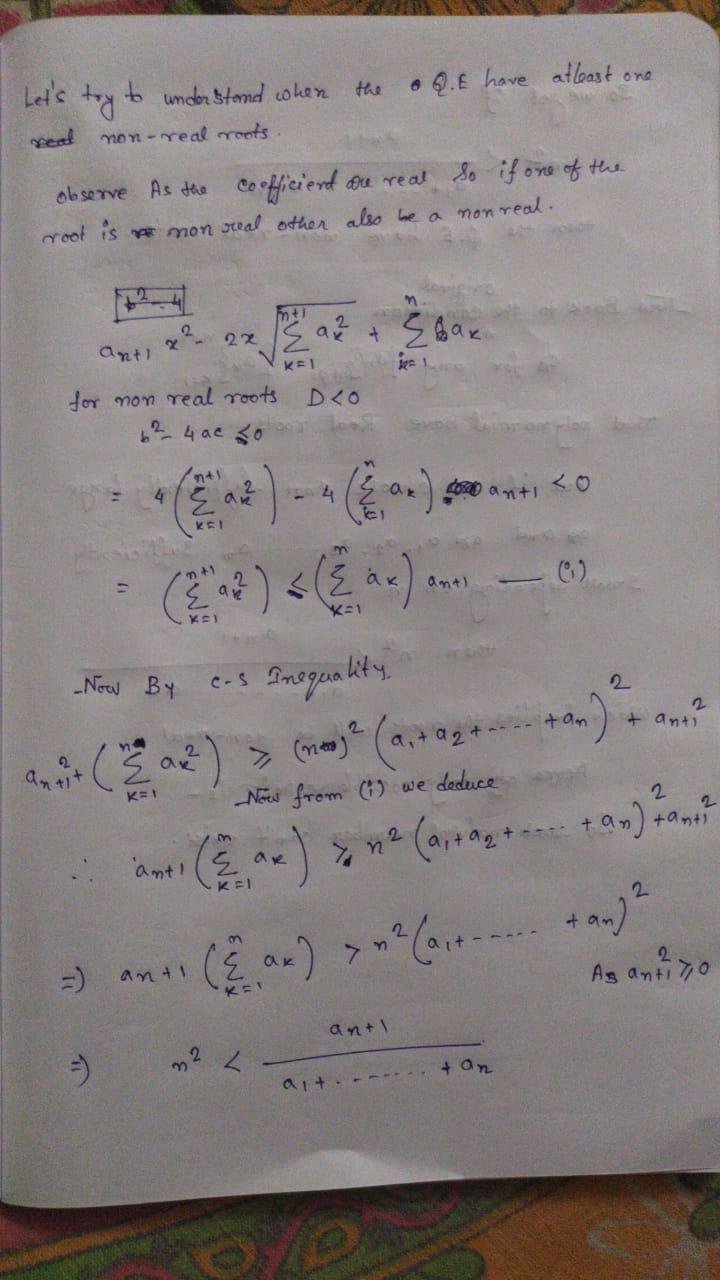 Let's try to understand when the Q.E have atleast one
real non-real roots.
observe As the coefficient are real So if one of the
root is non real other also be a non real.
b² - 4
aₙ₊₁ x² - 2x √(∑_{k=1}^{n+1} aₖ²) + ∑_{k=1}^{n} aₖ
for non real roots D<0
b² - 4ac < 0
= 4(∑_{k=1}^{n+1} aₖ²) - 4(∑_{k=1}^{n} aₖ) aₙ₊₁ < 0
= (∑_{k=1}^{n+1} aₖ²) < (∑_{k=1}^{n} aₖ) aₙ₊₁ — (i)
Now By C-S Inequality.
aₙ₊₁² + (∑_{k=1}^{n} aₖ²) ⩾ (n)² (a₁ + a₂ + ---- + aₙ)² + aₙ₊₁²
Now from (i) we deduce
∴ aₙ₊₁ (∑_{k=1}^{n} aₖ) > n² (a₁ + a₂ + ---- + aₙ)² + aₙ₊₁²
⇒) aₙ₊₁ (∑_{k=1}^{n} aₖ) > n² (a₁ + ----- + aₙ)²
As aₙ₊₁² ⩾ 0
⇒) n² < aₙ₊₁ / (a₁ + ------- + aₙ)